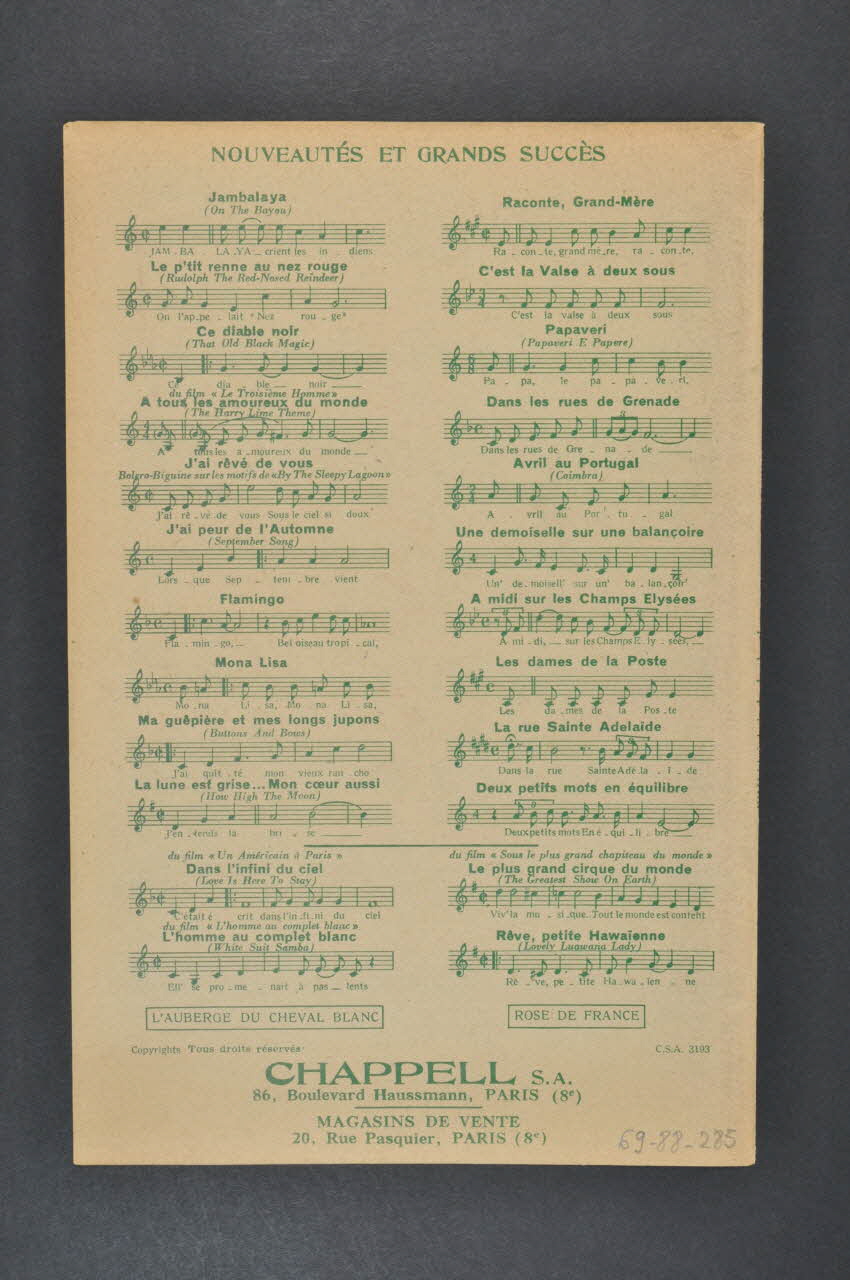 NOUVEAUTÉS ET GRANDS SUCCÈS
Jambalaya
(On The Bayou)
JAM - BA - LA - YA - crient les in - diens
Le p'tit renne au nez rouge
(Rudolph The Red-Nosed Reindeer)
On l'ap - pe - lait "Nez rou - ge"
Ce diable noir
(That Old Black Magic)
Ce dia - ble noir
du film « Le Troisième Homme »
A tous les amoureux du monde
(The Harry Lime Theme)
A tous les a - moureux du monde
J'ai rêvé de vous
Bolero-Biguine sur les motifs de «By The Sleepy Lagoon»
J'ai rê - vé de vous Sous le ciel si doux
J'ai peur de l'Automne
(September Song)
Lors - que Sep - tem - bre vient
Flamingo
Fla - min - go, Bel oiseau tropi - cal,
Mona Lisa
Mo - na Li - sa, Mo - na Li - sa,
Ma guêpière et mes longs jupons
(Buttons And Bows)
J'ai quit - té mon vieux ran - cho
La lune est grise... Mon cœur aussi
(How High The Moon)
J'en - tends la bri - se
du film « Un Américain à Paris »
Dans l'infini du ciel
(Love Is Here To Stay)
C'était é crit dans l'in - fi - ni du ciel
du film « L'homme au complet blanc »
L'homme au complet blanc
(White Suit Samba)
Ell' se pro - me - nait à pas lents
L'AUBERGE DU CHEVAL BLANC
Raconte, Grand-Mère
Ra - con - te, grand mè - re, ra - con - te,
C'est la Valse à deux sous
C'est la valse à deux sous
Papaveri
(Papaveri E Papere)
Pa - pa, le pa - pa - ve - ri,
Dans les rues de Grenade
Dans les rues de Gre - na - de
Avril au Portugal
(Coimbra)
A - vril au Por - tu - gal
Une demoiselle sur une balançoire
Un' de - moisell' sur un' ba - lan - çoir'
A midi sur les Champs Elysées
A mi - di, sur les Champs E - ly - sées,
Les dames de la Poste
Les da - mes de la Pos - te
La rue Sainte Adelaïde
Dans la rue Sainte Adé - la - ï - de
Deux petits mots en équilibre
Deux petits mots En é - qui - li - bre
du film « Sous le plus grand chapiteau du monde »
Le plus grand cirque du monde
(The Greatest Show On Earth)
Viv' la mu - si - que. Tout le monde est content
Rêve, petite Hawaïenne
(Lovely Luawana Lady)
Rê - ve, pe - tite Ha - wa - ïen - ne
ROSE DE FRANCE
Copyrights Tous droits réservés
C.S.A. 3193
CHAPPELL S.A.
86, Boulevard Haussmann, PARIS (8e)
MAGASINS DE VENTE
20, Rue Pasquier, PARIS (8e)
69-88-285